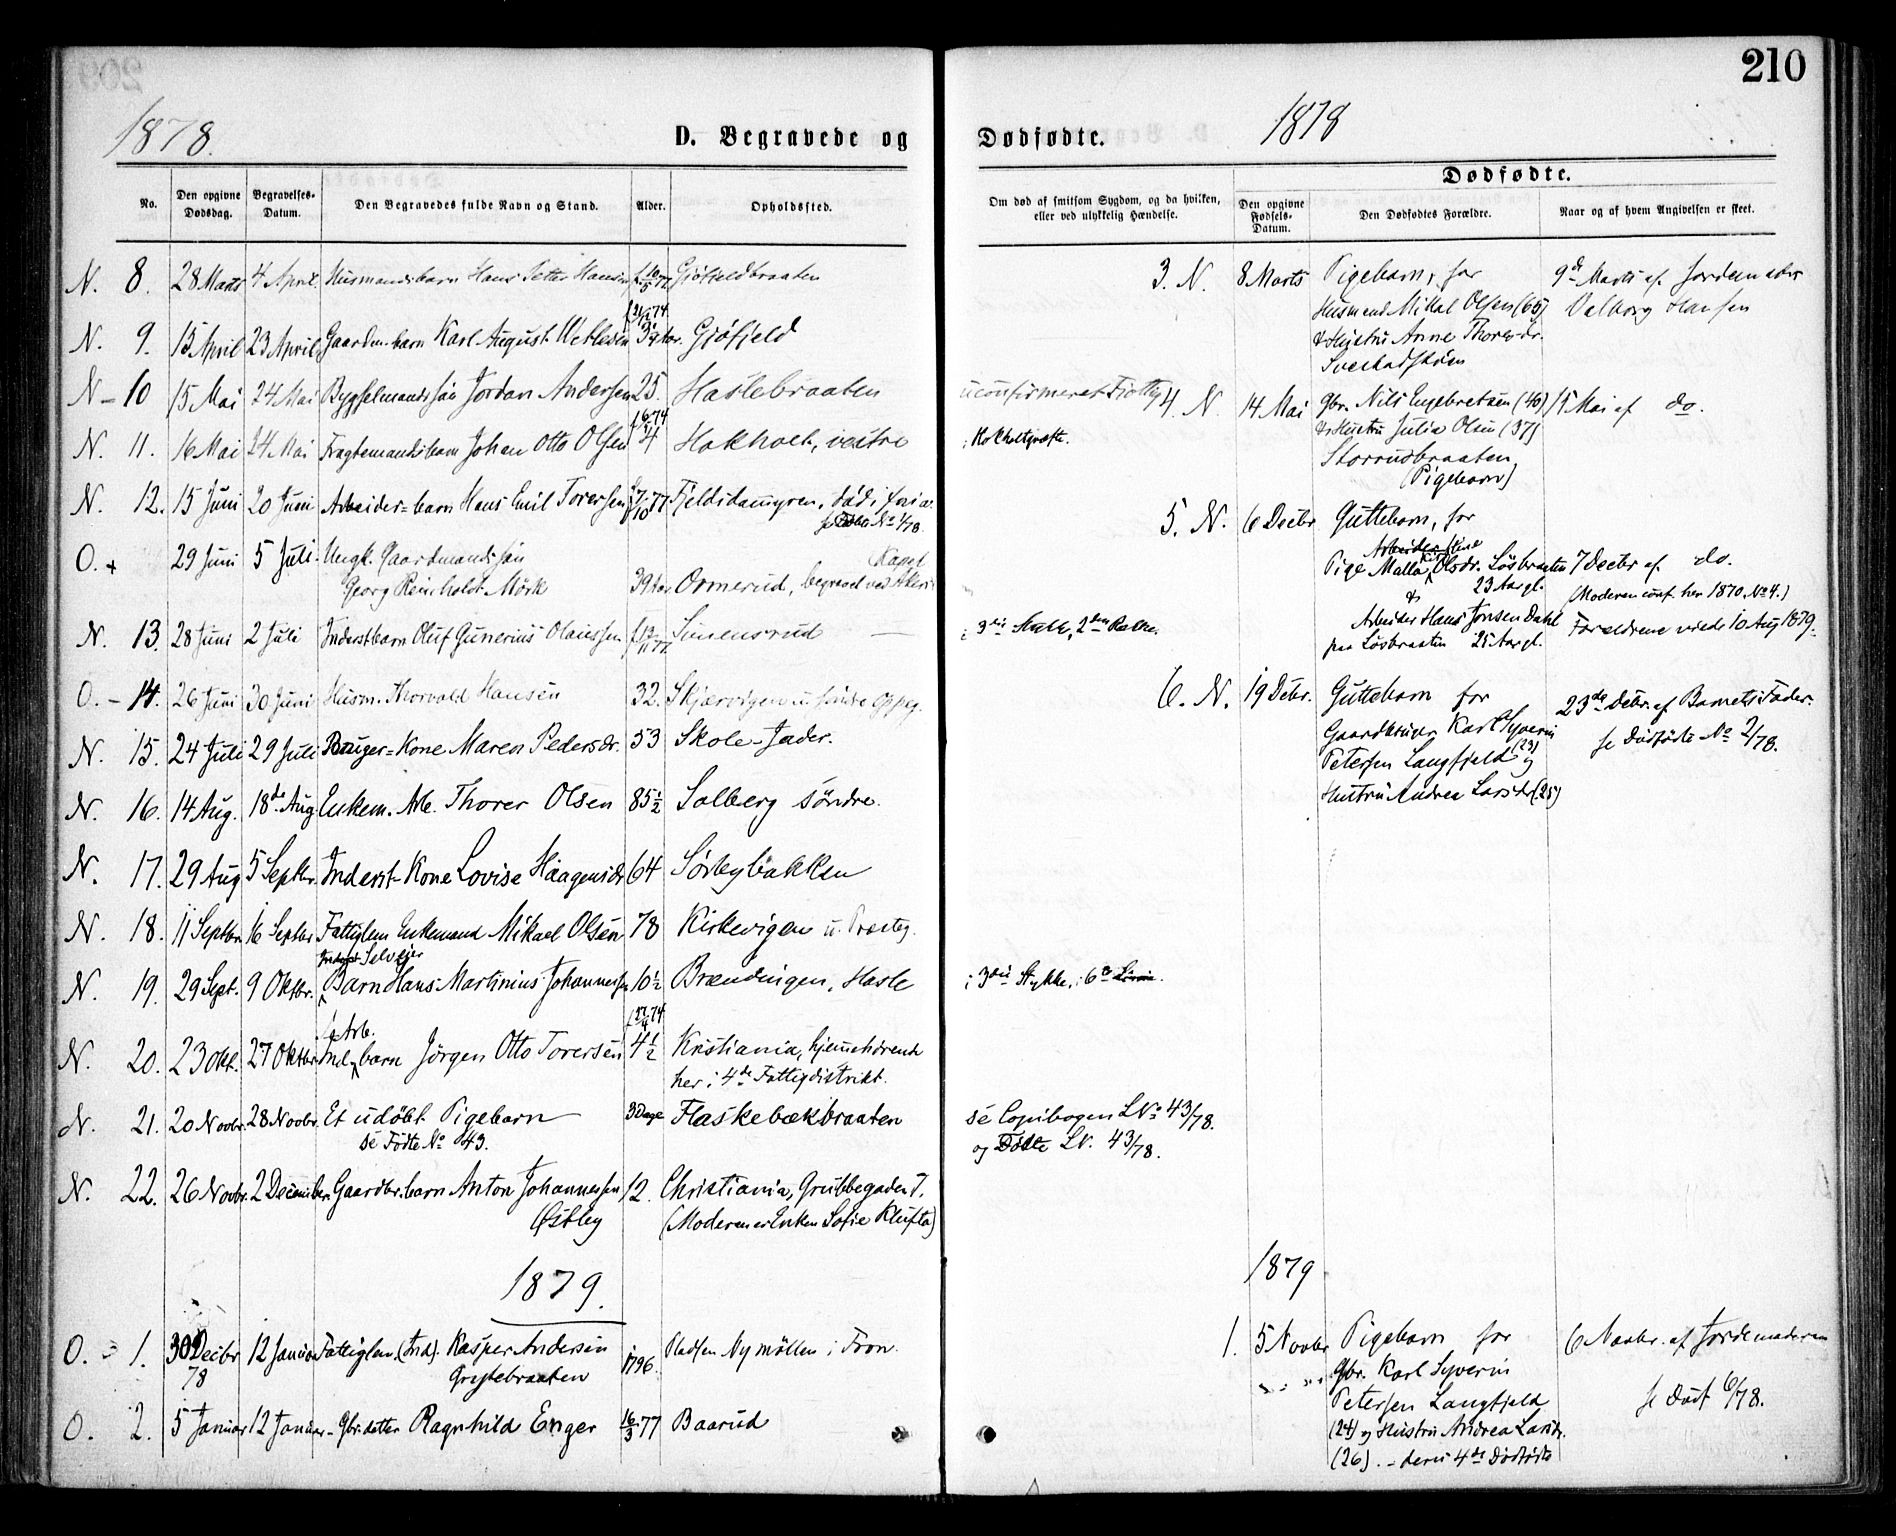 210
1878.
D. Begravede og
Dødfødte.
1878
No.
Den opgivne Dødsdag.
Begravelses-Datum.
Den Begravedes fulde Navn og Stand.
Alder.
Opholdssted.
Om død af smitsom Sygdom, og da hvilken, eller ved ulykkelig Hændelse.
Dødfødte.
Den opgivne Fødsels-Datum.
Den Dødfødtes Forældre.
Naar og af hvem Angivelsen er skeet.
N. 8. 28 Marts 4 April Husmandsbarn Hans Petter Hansen Gjøfjeldbraaten
N. 9. 15 April 23 April Gaardm. barn Karl August Gjøfjeld
N - 10 15 Mai 24 Mai Bygselmands søn Jordan Andersen 25. Haslebraaten
N. 11. 16 Mai 24 Mai Fragtemandsbarn Johan Otto Olsen 4 Hokholt, vestre
N. 12. 15 Juni 20 Juni Arbeider=barn Hans Emil Toversen Fjeldsdamyren,
O. + 29 Juni 5 Juli Ungk. Gaardmands søn
Georg Reinholdt Mörk 39 Ormerud, begravet ved
Kapel
N. 13. 28 Juni 2 Juli Inderstbarn Oluf Gunerius Olaussen Sunensrud
O. - 14. 26 Juni 30 Juni Husm. Thorvald Hansen 32. Skjærvigen u. søndre Oppeg.
N. 15. 24 Juli 29 Juli Bruger=Kone Maren Pedersdr. 53 Skole-Jader.
N. 16. 14 Aug. 18de Aug Enkem. Arb. Thorer Olsen 85½ Solberg søndre.
N. 17. 29 Aug 5 Septbr. Inderst-Kone Lovise Haagensdr 64 Sörbybakken
N. 18. 11 Septbr 16 Septbr Fattiglem Enkemand Mikael Olsen 78 Kirkevigen u. Præsteg.
Selveier
N. 19. 29 Sept. 9 Oktbr. Barn Hans Martinius Johannessen 10½ Brændingen, Hasle
Arb.
N. 20. 23 Okt. 27 Oktbr Ind. barn Jörgen Otto Toversen 4½ Kristiania, hjemhörende
her i 4de Fattigdistrikt.
N. 21. 20 Novbr. 28 Novbr. Et udøbt Pigebarn 3 Dage Flaskebækbraaten
se Fødte No 43.
N. 22. 26 Novbr. 2 December. Gaardbr. barn Anton Johannessen 12. Christiania, Grubbegaden 7.
Østby (Moderen er Enken Sofie Klufta)
1879.
O. 1. 30 Decbr 78 12 Januar Fattiglem. (Ind). Kasper Andersen 1796. Pladsen Nymöllen i Fron.
Grytebraaten
O. 2. 5 Januar 12 Januar - Gbr. datter Ragnhild Enger 16/3 77 Baarud
uconfirmeret
i Hokholtgrøfte.
i 3die Stykke, 6te
se Copibogen L No 43/78.
og Fødte L N. 43/78.
3. N. 8 Marts Pigebarn, for
Husmand Mikal Olsen (65)
& Hustru Anne Thoresdr.
9de Marts af Jordemoder
Valborg Hansen
4. N. 14 Mai Gbr. Nils Engebretsen (40)
& Hustru Julia Olsen (37)
Storrudbraaten
(Pigebarn)
15 Mai af do.
5. N. 6 Decbr Guttebarn, for
Pige Malla Olsdr. Lösbraaten
23 Aar gl.
&
Arbeider Hans Jensen Dahl
paa Lösbraaten 25 Aar gl.
7 Decbr af do.
(Moderen conf. her 1870. No 4.)
Forældrene viede 10 Aug 1879.
6. N. 19 Debr. Guttebarn for
Gaardbruger Karl Syverin
Petersen Langfjeld (23) og
Hustru Andrea Larsdr (25)
23de Debr. af Barnets Fader.
se Dødfødte No 2/78.
1879
1. 5 Novbr Pigebarn for
Gbr. Karl Syverin
Petersen Langfjeld
(24) og Hustru Andrea Larsdr.
(26). - deres 4de Dødfødte
6 Novbr. af Jordemoderen
se Død 6/78.